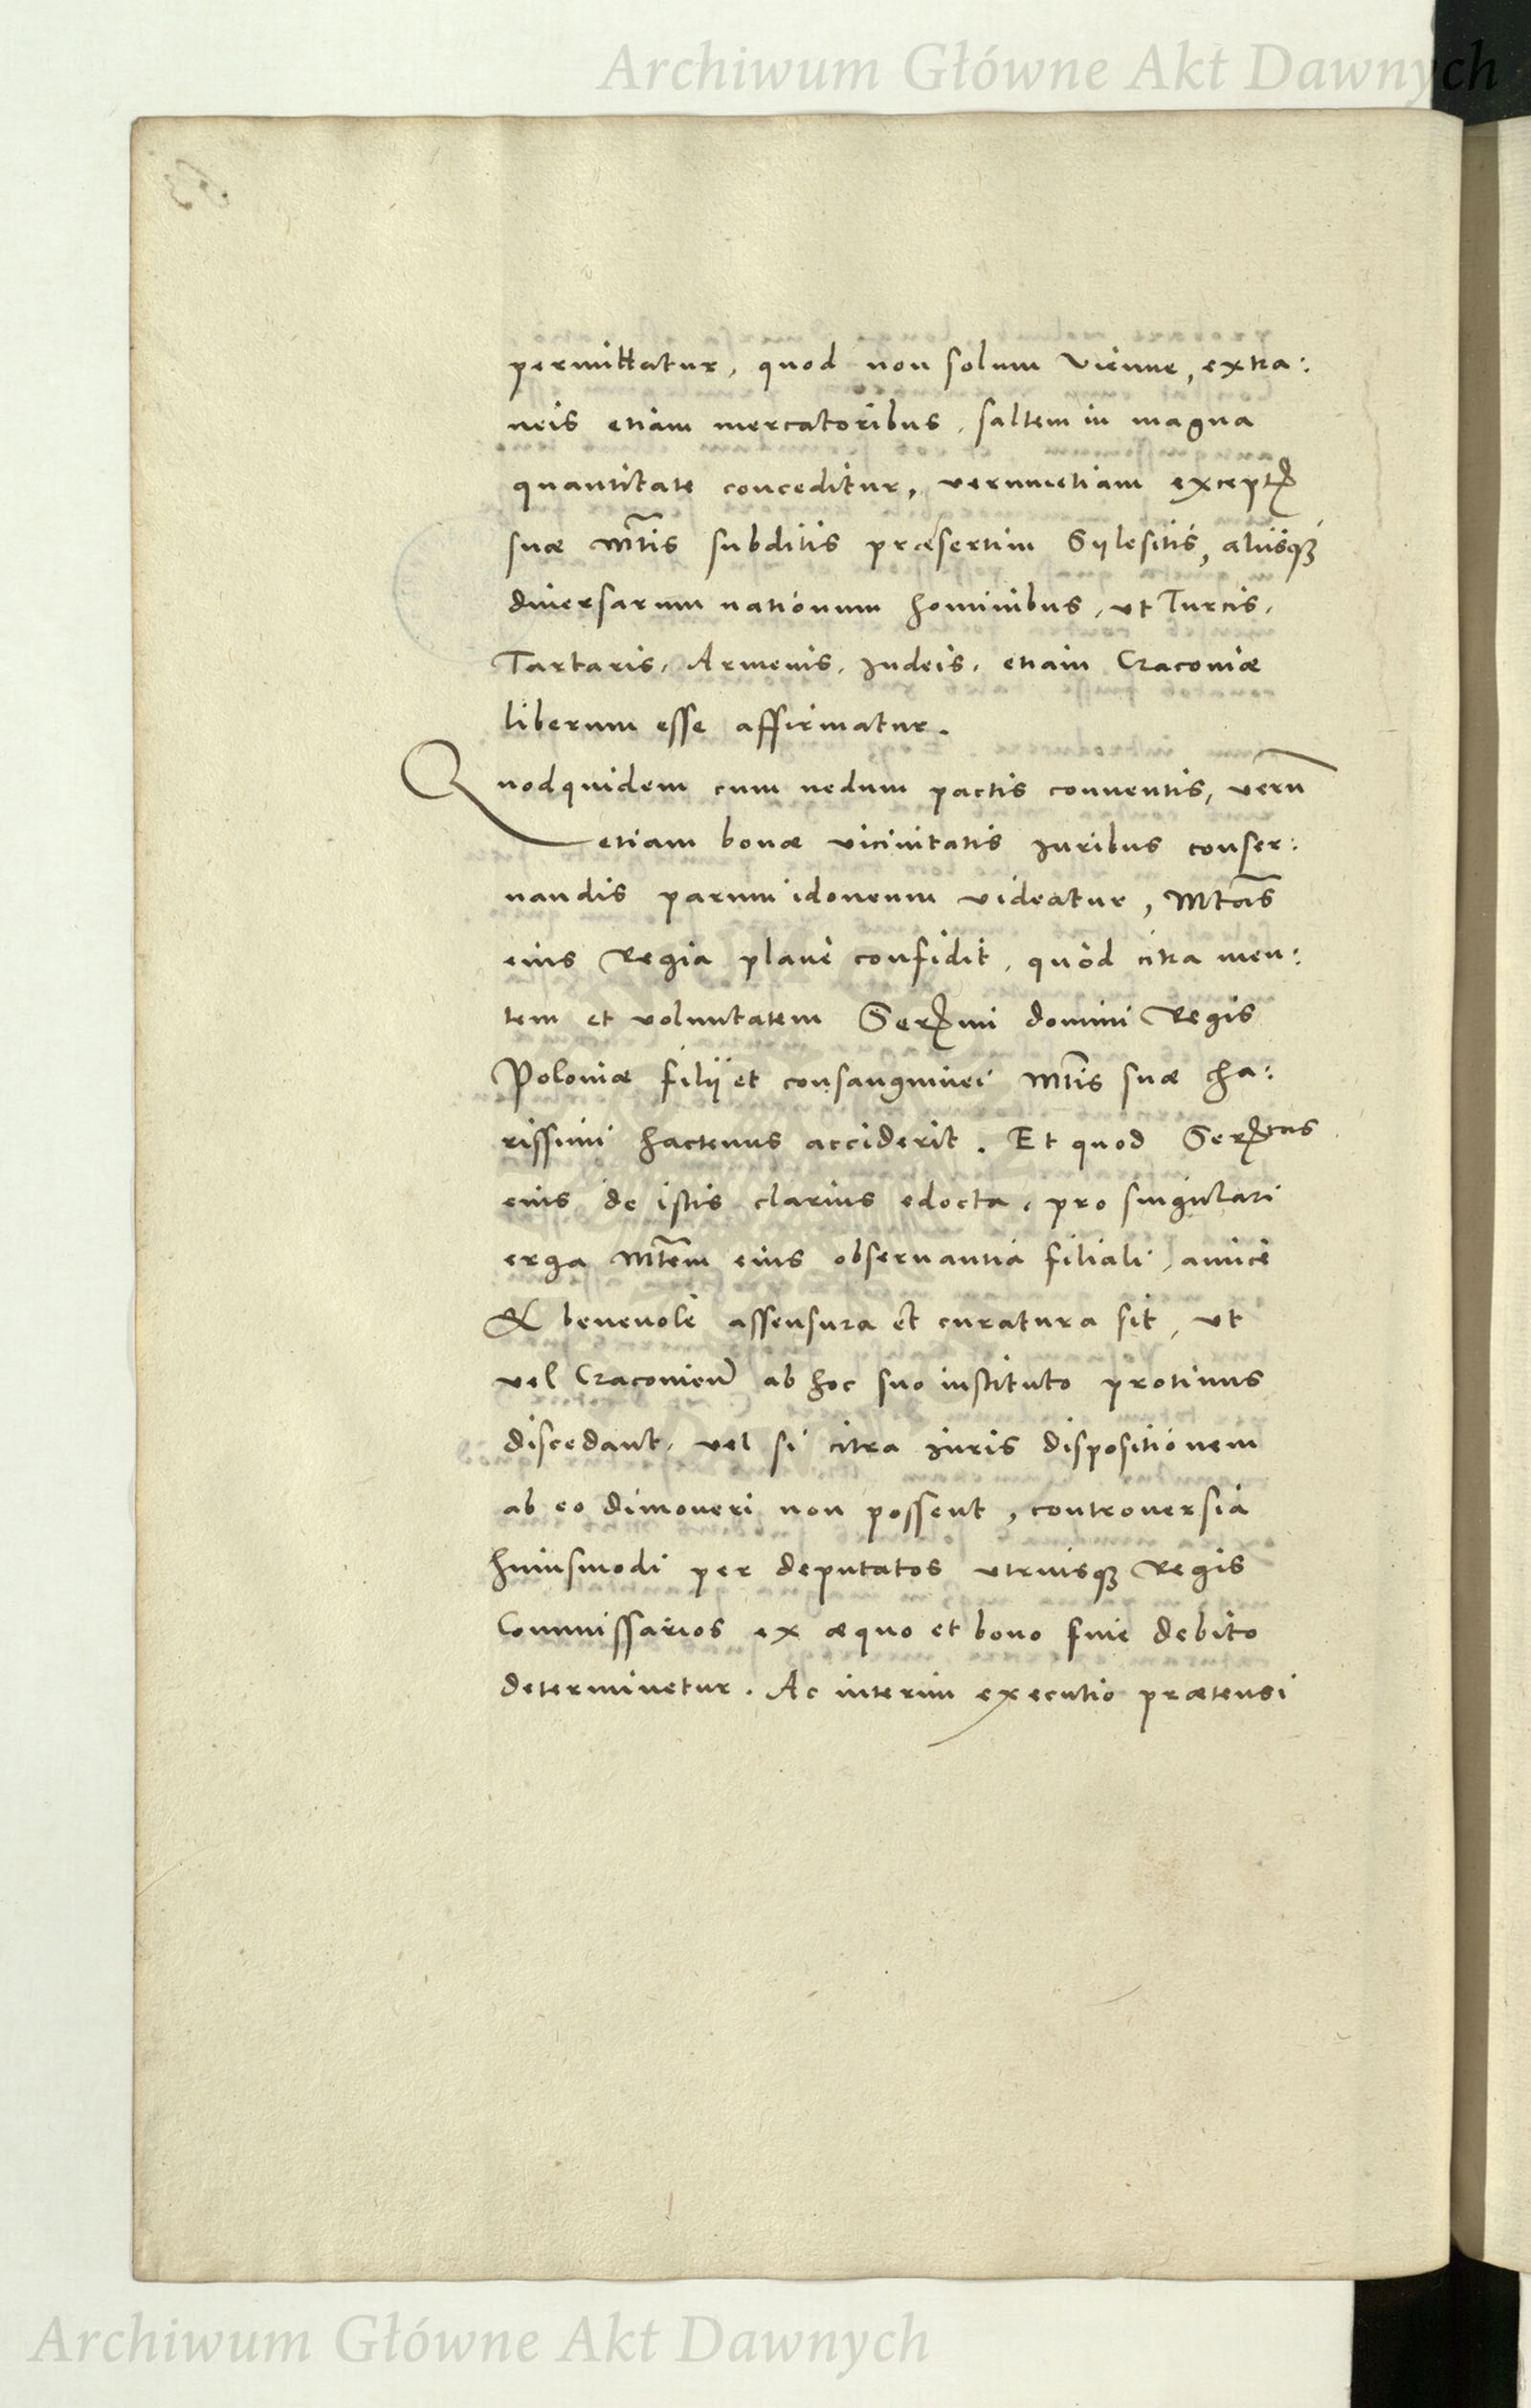 Archiwum Główne Akt Dawnych
permittatur, quod non solum Vienne, extra:
neis etiam mercatoribus, saltem in magna
quantitate conceditur, verumetiam except͞
suæ Mt͞is subditis præsertim Sylesitis, aliisq́ꝫ
diuersarum nationum hominibus, ut Turcis,
Tartaris, Armenis, Iudeis, etiam Cracouiæ
liberum esse affirmatur.
Quodquidem cum nedum pactis conuentis, verū
etiam bonæ vicinitatis iuribus conser:
uandis parum idoneum videatur, Mt͞as
eius Regia planè confidit, quòd citra men:
tem et voluntatem Ser͞mi domini Regis
Poloniæ filij et consanguinei Mt͞is suæ cha:
rissimi hactenus acciderit. Et quod Ser͞tas
eius de istis clarius edocta, pro singulari
erga Mt͞em eius obseruantia filiali, amicè
& beneuolè assensura et curatura sit, ut
vel Cracouien͞ ab hoc suo instituto protinus
discedant, vel si citra iuris dispositionem
ab eo dimoueri non possent, controuersia
huiusmodi per deputatos utriusqꝫ Regis
Commissarios ex æquo et bono fine debito
determinetur. Ac interim executio prætensi
Archiwum Główne Akt Dawnych